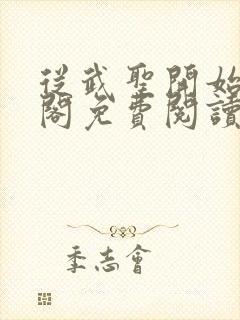 從武聖開始
閣免費閱讀
季志會